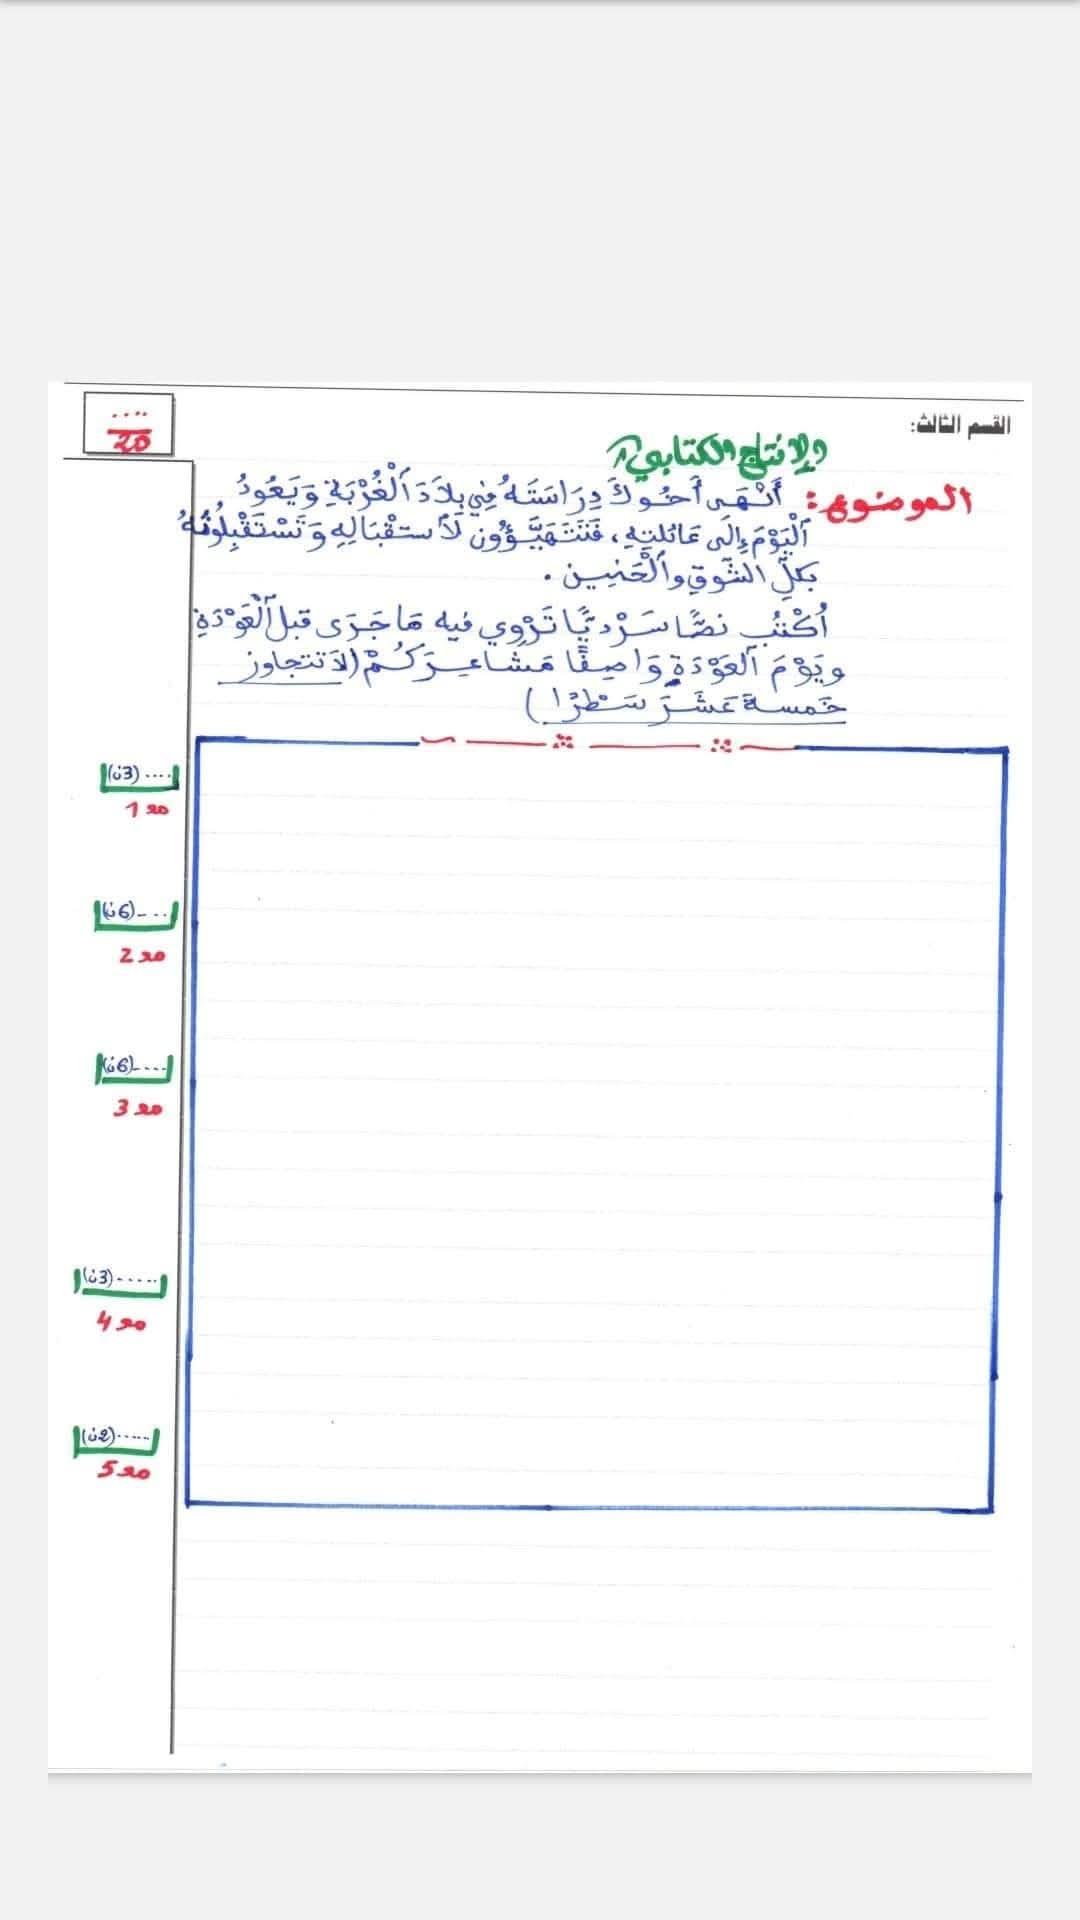 القسم الثالث:
....
20
الإنتاج الكتابي
الموضوع: أَنْهَى أَخُوكَ دِرَاسَتَهُ فِي بِلَادِ ٱلْغُرْبَةِ وَيَعُودُ
ٱلْيَوْمَ إِلَى عَائلتِهِ، فَتَتَهَيَّؤُون لٱستقْبَالِهِ وَتَسْتَقْبِلُونَهُ
بكلِّ الشّوقِ وٱلْحَنِين.
اُكْتُبْ نصًّا سَرْديًّا تَرْوِي فيه مَا جَرَى قبل ٱلْعَوْدَةِ
ويَوْمَ ٱلعَوْدَةِ وَاصِفًا مَشَاعِرَكُمْ (لاَ تتجاوز
خَمسةَ عَشَرَ سَطْرًا)
.... (3ن)
مع 1
.... (6ن)
مع 2
.... (6ن)
مع 3
..... (3ن)
مع 4
..... (2ن)
مع 5